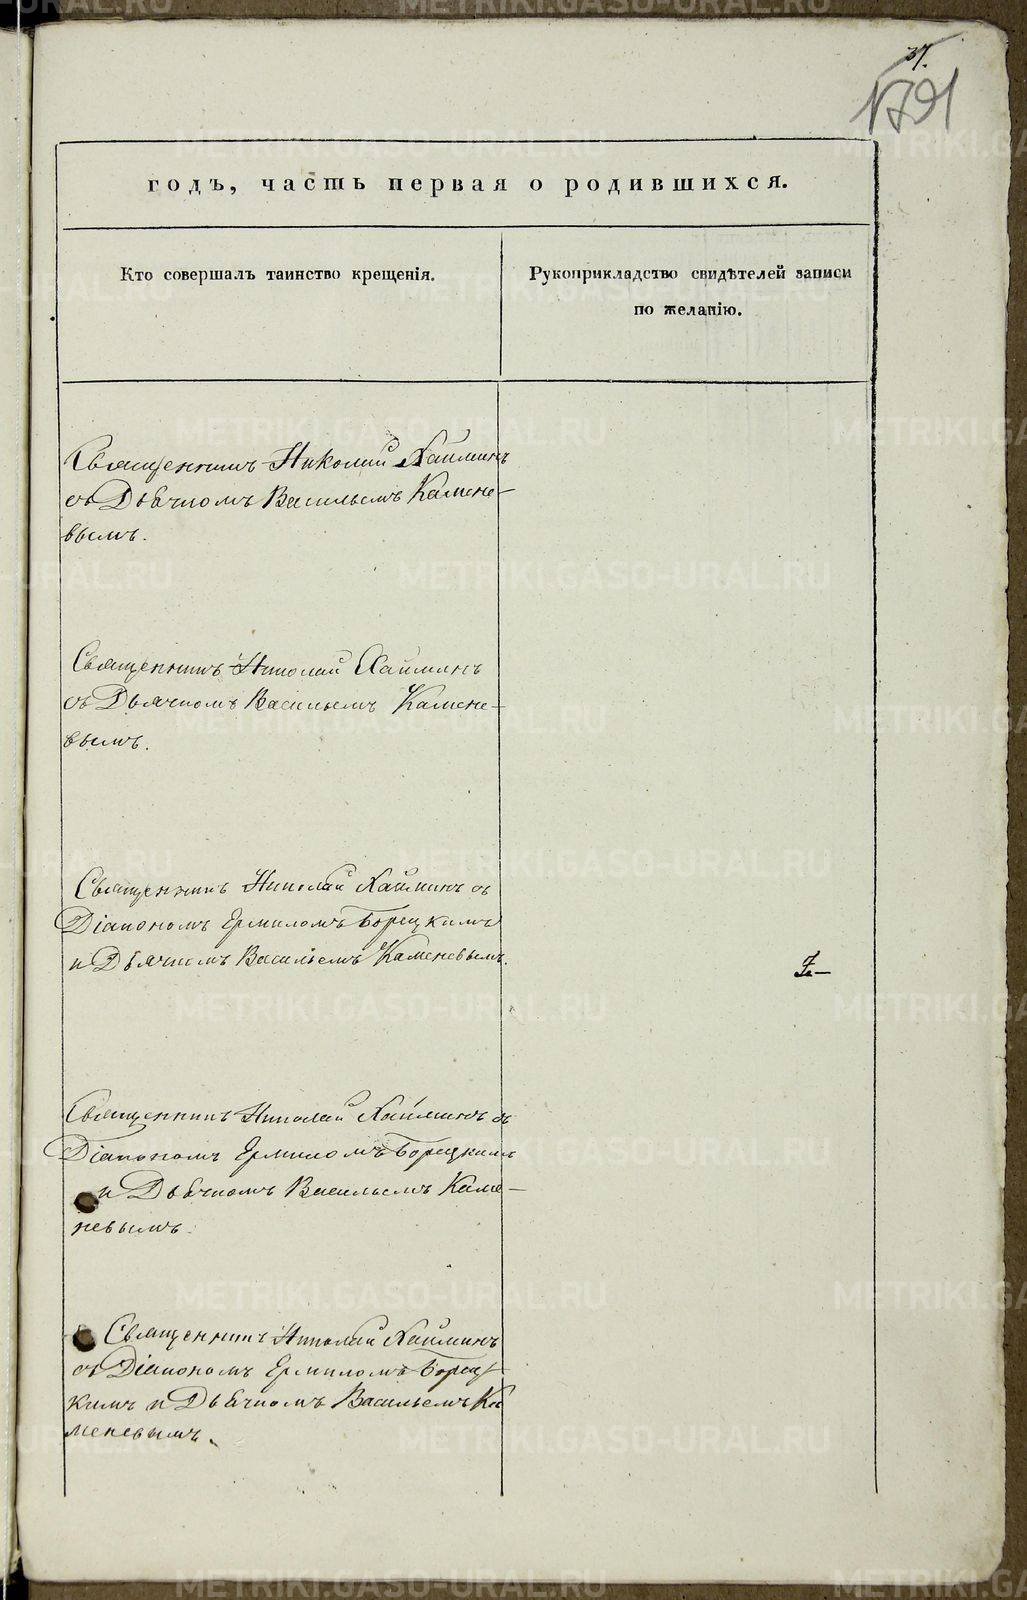 37.
1791
годъ, часть первая о родившихся.
Кто совершалъ таинство крещенія.
Рукоприкладство свидѣтелей записи
по желанію.
Священникъ Николай Хайминъ
съ Дьячкомъ Васильемъ Камене-
вымъ.
Священникъ Николай Хайминъ
съ Дьячкомъ Васильемъ Камене-
вымъ.
Священникъ Николай Хайминъ съ
Діакономъ Ермиломъ Борецкимъ
и Дьячкомъ Васильемъ Каменевымъ.
Священникъ Николай Хайминъ съ
Діакономъ Ермиломъ Борецкимъ
и Дьячкомъ Васильемъ Каме-
невымъ.
Священникъ Николай Хайминъ
съ Діакономъ Ермиломъ Борец-
кимъ и Дьячкомъ Васильемъ Ка
меневымъ.
METRIKI.GASO-URAL.RU